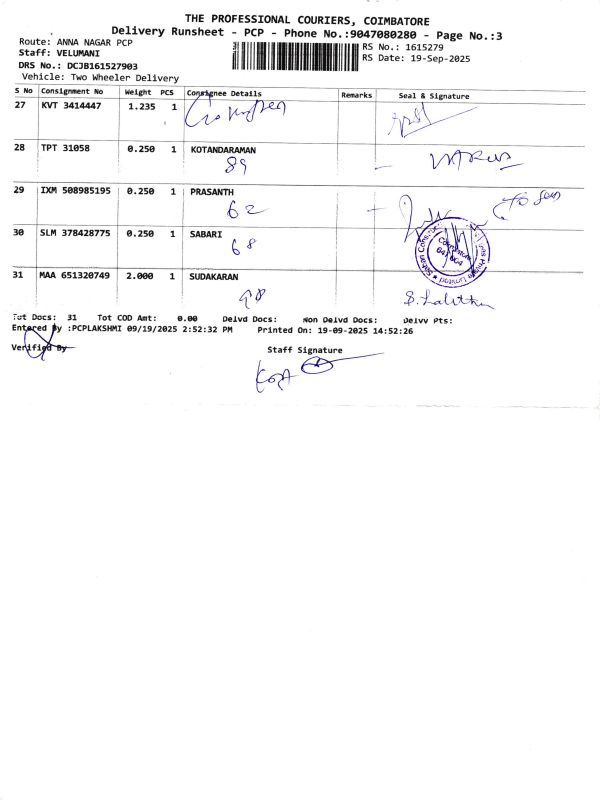 THE PROFESSIONAL COURIERS, COIMBATORE
Delivery Runsheet - PCP - Phone No.:9047080280 - Page No.:3
Route: ANNA NAGAR PCP
Staff: VELUMANI
RS No.: 1615279
DRS No.: DCJB161527903
RS Date: 19-Sep-2025
Vehicle: Two Wheeler Delivery
S No Consignment No Weight PCS Consignee Details Remarks Seal & Signature
27 KVT 3414447 1.235 1
28 TPT 31058 0.250 1 KOTANDARAMAN
89
29 IXM 508985195 0.250 1 PRASANTH
62
30 SLM 378428775 0.250 1 SABARI
68
31 MAA 651320749 2.000 1 SUDAKARAN
98
Tot Docs: 31 Tot COD Amt: 0.00 Delvd Docs: Non Delvd Docs: Delvv Pts:
Entered By :PCPLAKSHMI 09/19/2025 2:52:32 PM Printed On: 19-09-2025 14:52:26
Verified By Staff Signature